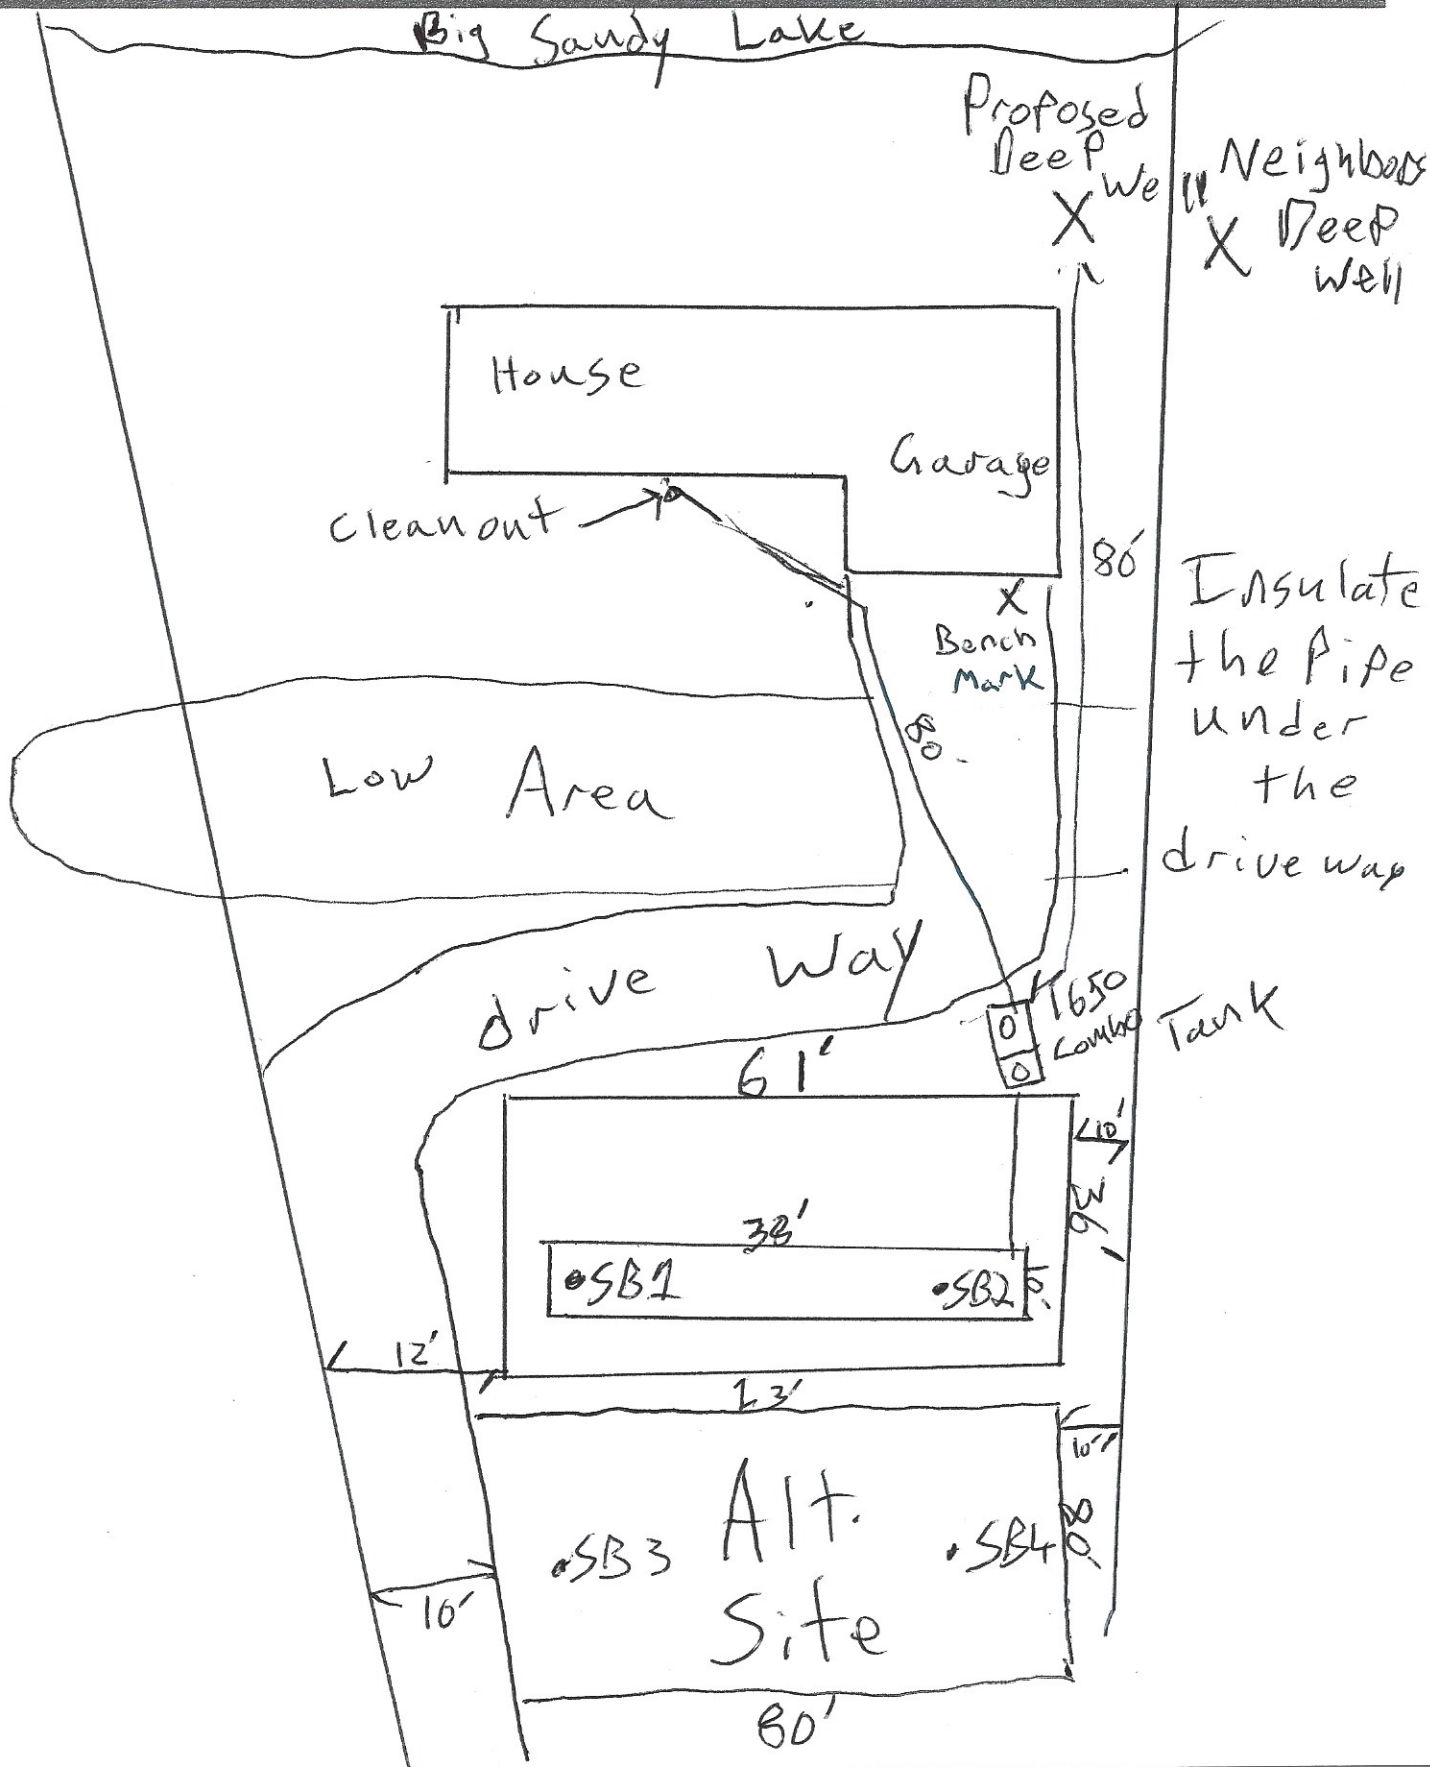 Big Sandy Lake
Proposed
Deep
Well
X
Neighbors
X Deep
Well
House
Garage
Cleanout
80'
X
Bench
Mark
Insulate
the Pipe
under
the
drive way
80'
Low Area
drive Way
1650
Combo
Tank
61'
10'
36'
38'
SB1
SB2
10'
12'
13'
10'
Alt.
Site
SB3
SB4
80'
10'
80'